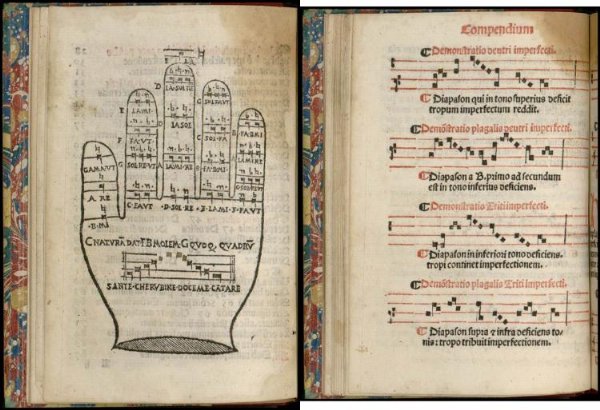 E LA
D LASOLRE
E LAMI
LASOL
GSOLREUT
F FAUT
SOLFA
FABMI
GAMAUT
G SOLREUT
A LAMIRE
FABMI
LAMIRE
A RE
GSOLREUT
B MI
C FAUT
D SOLRE
E LAMI
F FAUT
C NATVRÃ DAT F B MOLEM G QVOQ QVADRV̄
SANTE CHERVBINE DOCE ME CATARE
Compendium
Demonstratio deutri imperfecti.
Diapason qui in tono superius deficit
tropum imperfectum reddit.
Demõstratio plagalis deutri imperfecti.
Diapason a B. primo ad secundum
est in tono inferius deficiens.
Demonstratio Triti imperfecti.
Diapason in inferiori tono deficiens.
tropi continet imperfectionem.
Demõstratio plagalis Triti imperfecti.
Diapason supra ⁊ infra deficiens to-
nis: tropo tribuit imperfectionem.